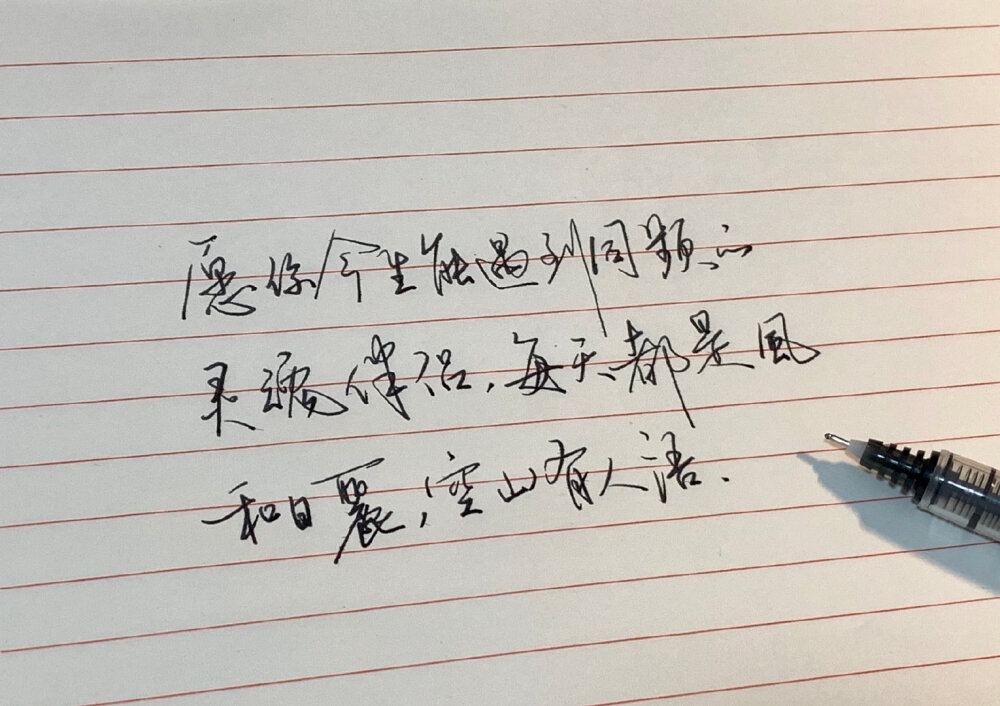 愿你今生能遇到同频的
灵魂伴侣，每天都是風
和日麗，空山有人语.